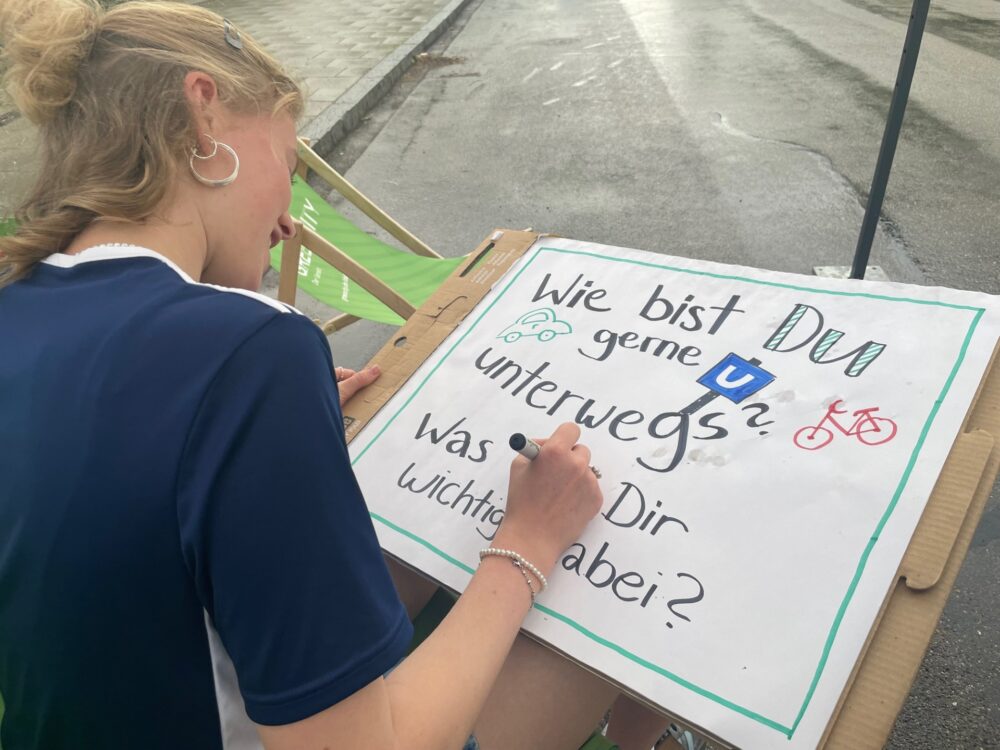 Wie bist DU
gerne
unterwegs?
U
Was Dir
wichtig abei?